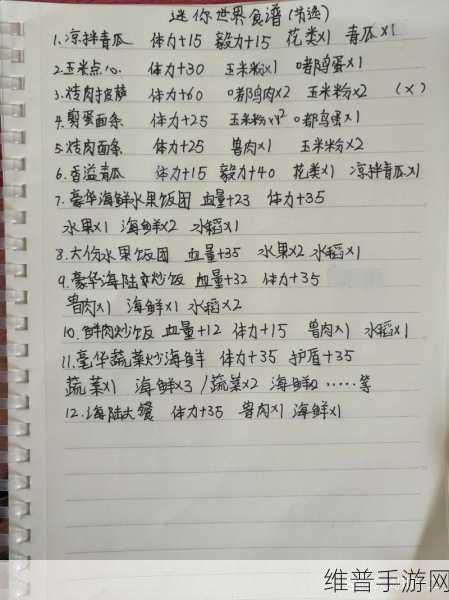 迷你世界食谱(精选)
1.凉拌青瓜 体力+15 毅力+15 花类x1 青瓜x1
2.玉米点心 体力+30 玉米粉x1 嘟嘟鸟蛋x1
3.烤肉披萨 体力+60 嘟嘟鸟肉x2 玉米粉x2 (x)
4.煎蛋面条 体力+25 玉米粉x2 嘟嘟鸟蛋x1
5.烤肉面条 体力+25 兽肉x1 玉米粉x2
6.香溢青瓜 体力+15 毅力+40 花类x1 凉拌青瓜x1
7.豪华海鲜水果饭团 血量+23 体力+35
水果x1 海鲜x2 水稻x1
8.大份水果饭团 血量+35 水果x2 水稻x1
9.豪华海陆炒饭 血量+32 体力+35
兽肉x1 海鲜x1 水稻x2
10.鲜肉炒饭 血量+12 体力+15 兽肉x1 水稻x1
11.豪华蔬菜炒海鲜 体力+35 护盾+35
蔬菜x1 海鲜x3/蔬菜x2 海鲜x2 ……等
12.海陆大餐 体力+35 兽肉x1 海鲜x1
维普手游网